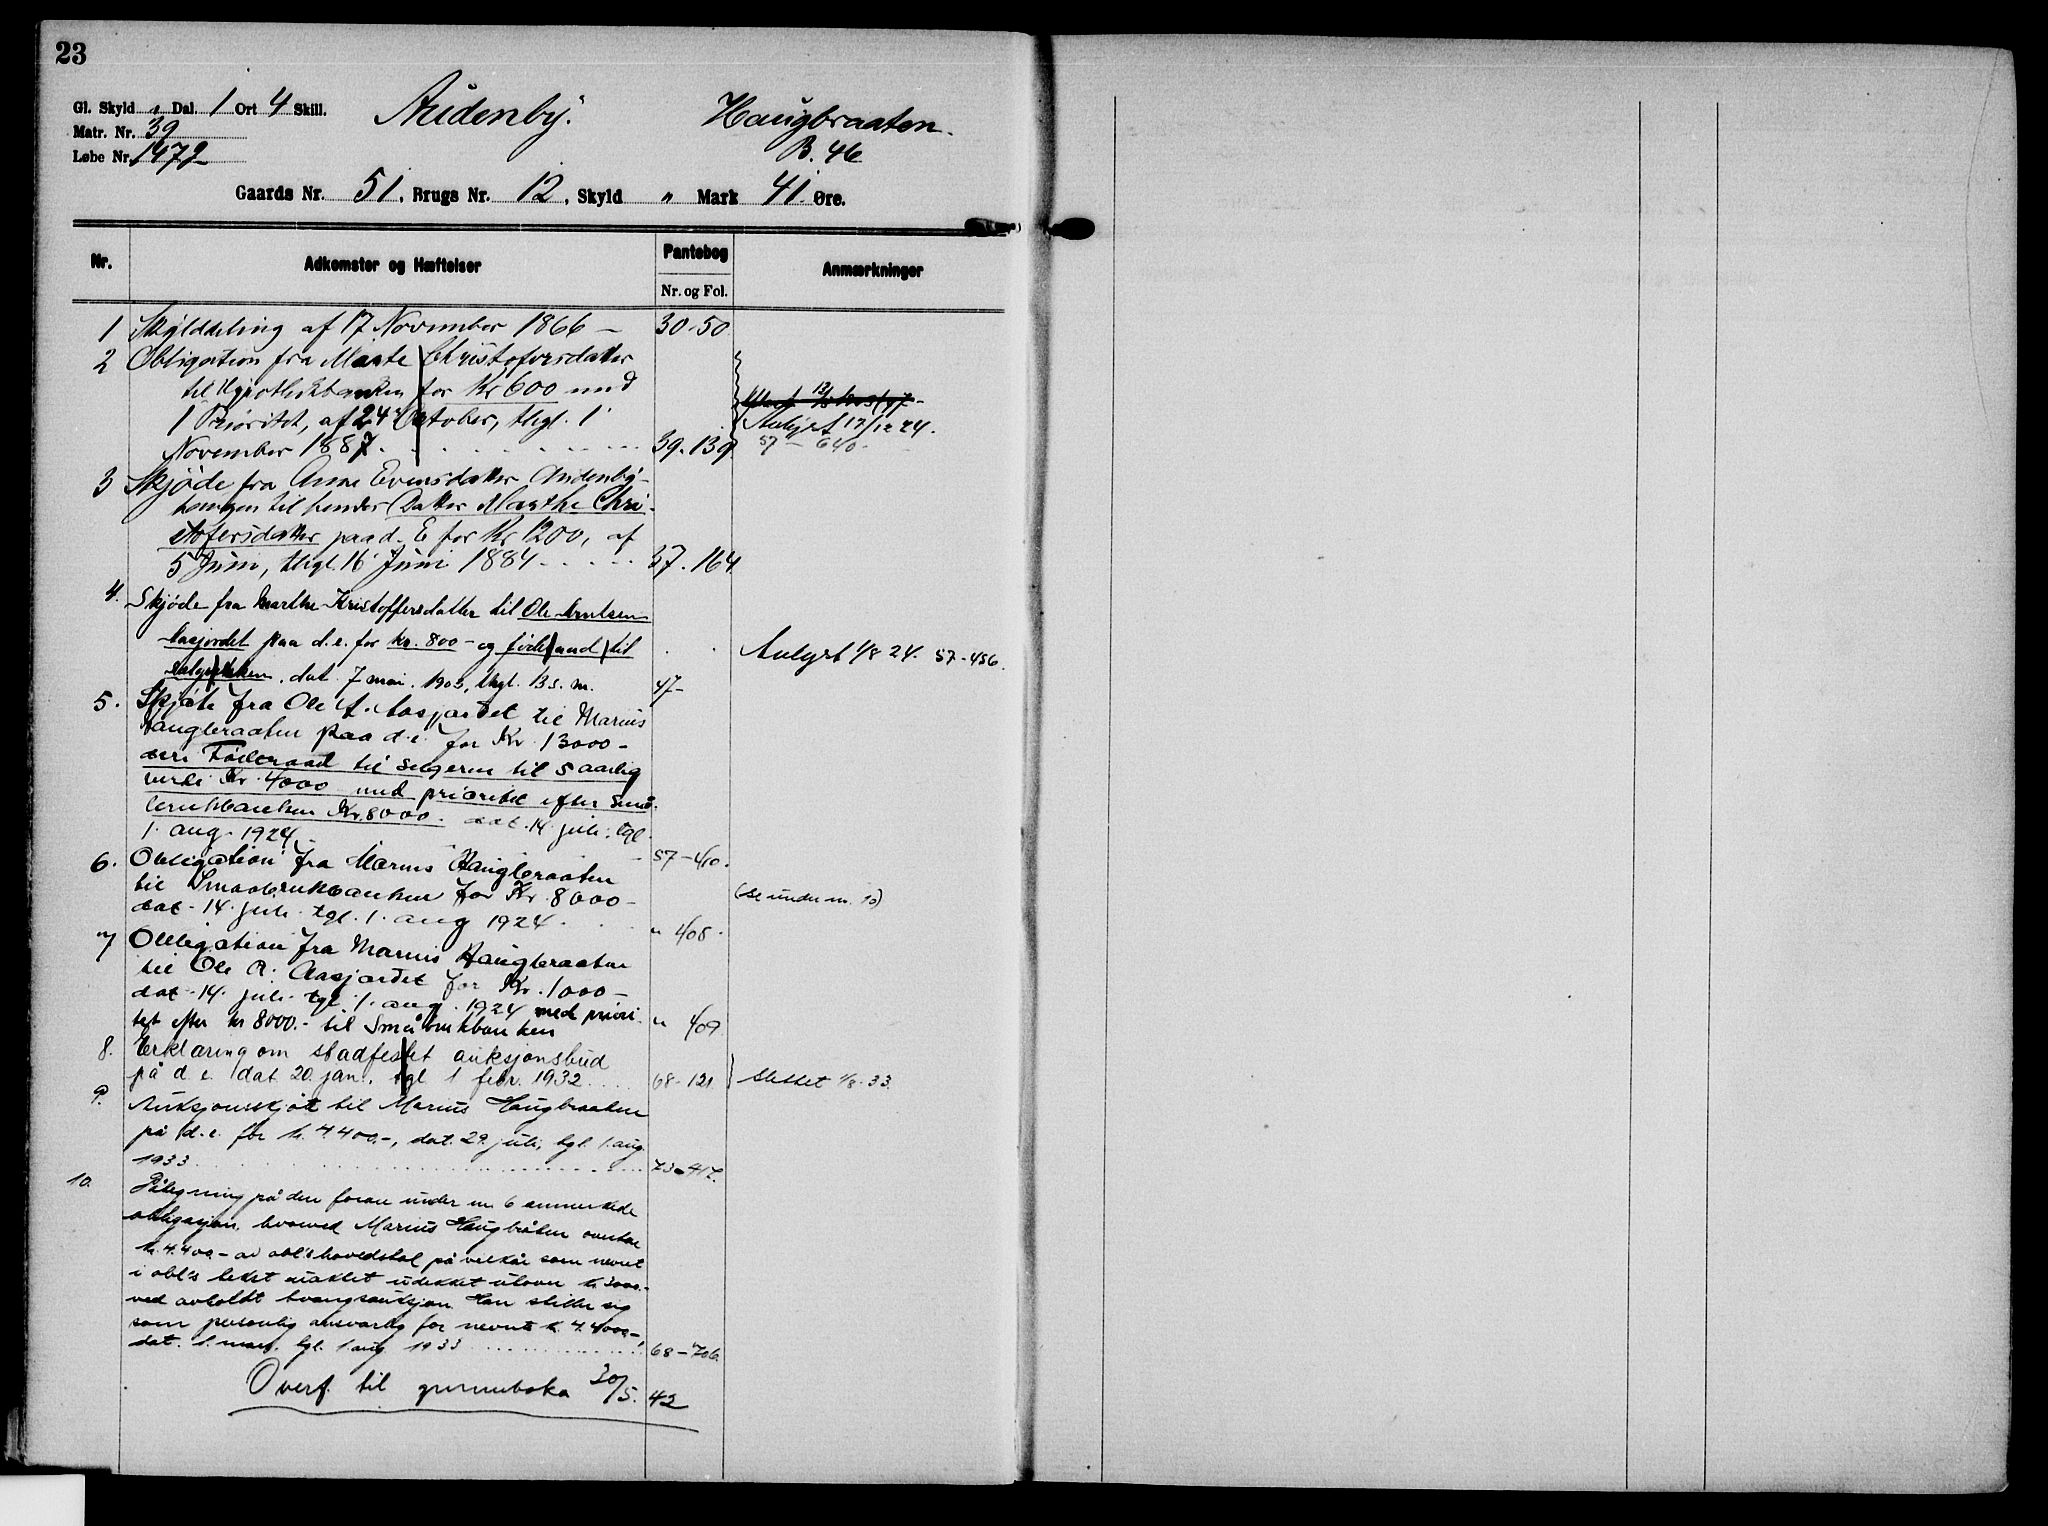 23
Gl. Skyld " Dal. 1 Ort 4 Skill.
Matr. Nr. 39
Løbe Nr. 147g
Audenby.
Haugbraaten.
B. 46
Gaards Nr. 51, Brugs Nr. 12, Skyld " Mark 41 Øre.
Nr.
Adkomster og Hæftelser
Pantebog
Nr. og Fol.
Anmærkninger
1 Skylddeling af 17 November 1866 — 30-50
2 Obligation fra Marte Christofersdatter
til Hypothekbanken for Kr 600 med
1 Prioritet, af 24 October, thgl. 1
Avlyst 17/12 24.
November 1887. 39.139 57-640.
3 Skjøde fra Anne Evensdatter Audenby-
haugen til hendes Datter Marthe Chri-
stofersdatter paa d. E for Kr 1200, af
5 Juni, thgl. 16 Juni 1884 37.164
4. Skjøde fra Marthe Kristoffersdatter til Ole Arntsen
Aasjordet paa d.e. for kr. 800 - og føderaad til
Avlyst 1/8 24. 57-456.
dat. 7 mai 1903, thgl. 13 s. m. 47-
5. Skjøte fra Ole A. Aasjordet til Marius
Haugbraaten paa d.e. for Kr. 13000-
deri Føderaad til selgeren til 5 aarlig
verdi Kr. 4000 med prioritet efter Små-
brukbanken Kr. 8000. dat. 14. juli. tgl.
1. aug. 1924 57-410.
6. Obligation fra Marius Haugbraaten
til Smaabrukbanken for Kr. 8000-
(Se under nr. 10)
dat. 14. juli. tgl. 1. aug 1924. " 408.
7 Obligation fra Marius Haugbraaten
til Ole A. Aasjordet for Kr. 1000-
dat. 14. juli. tgl. 1. aug. 1924 med priori-
tet efter kr 8000.- til Småbrukbanken " 409
8. Erklæring om stadfestet auksjonsbud
på d. e. dat. 20. jan., tgl. 1 febr. 1932 68-121 Slettet 1/8-33.
9. Auksjonsskjøte til Marius Haugbraaten
på d.e. for kr. 4.400,-, dat. 29. juli, tgl. 1. aug.
1933 73-417.
10. Påtegning på den foran under nr. 6 anmerkede
obligasjon, hvorved Marius Haugbråten overtar
kr. 4.400,- av obl.s hovedstol på vilkår som nevnt
i obl's tekst udekket utover kr.
ved avholdt tvangsauksjon. Han stiller sig
som personlig ansvarlig for nevnte kr. 4.400,-,
dat. 1. mars, tgl. 1. aug. 1933 68-706.
Overf. til grunnboka 30/5. 42